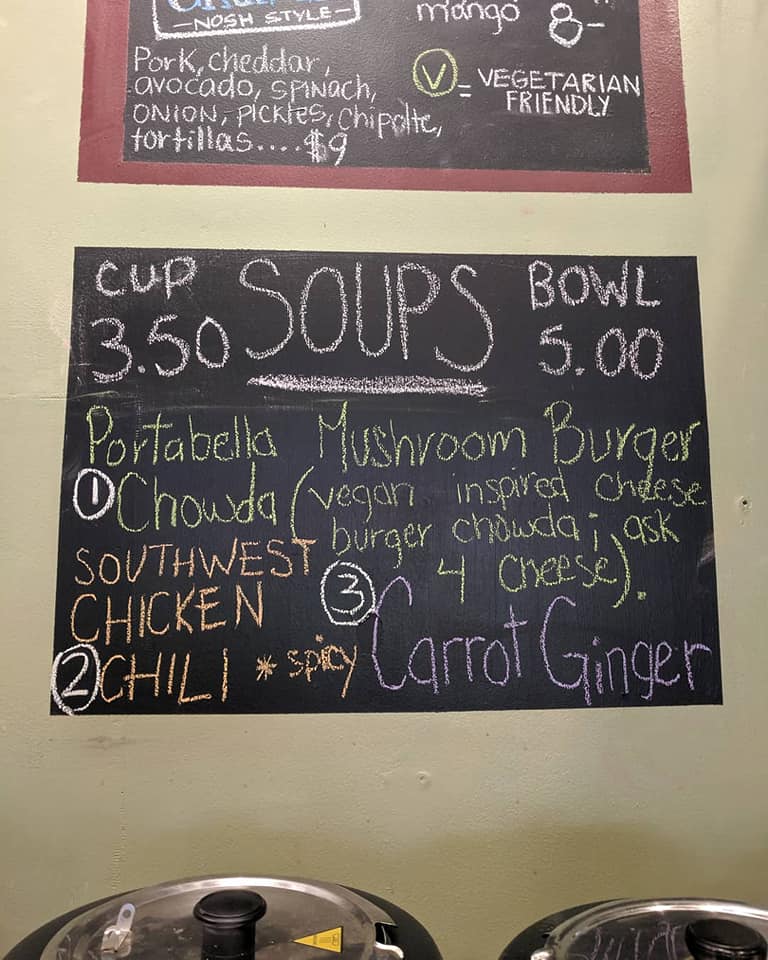 —NOSH STYLE—
Pork, cheddar,
avocado, spinach,
ONION, pickles, chipolte,
tortillas....$9
mango 8-
V = VEGETARIAN
FRIENDLY
CUP SOUPS BOWL
3.50 5.00
Portabella Mushroom Burger
1 Chowda (vegan inspired cheese
burger chowda; ask
4 cheese).
SOUTHWEST
CHICKEN
2 CHILI * spicy
3 Carrot Ginger